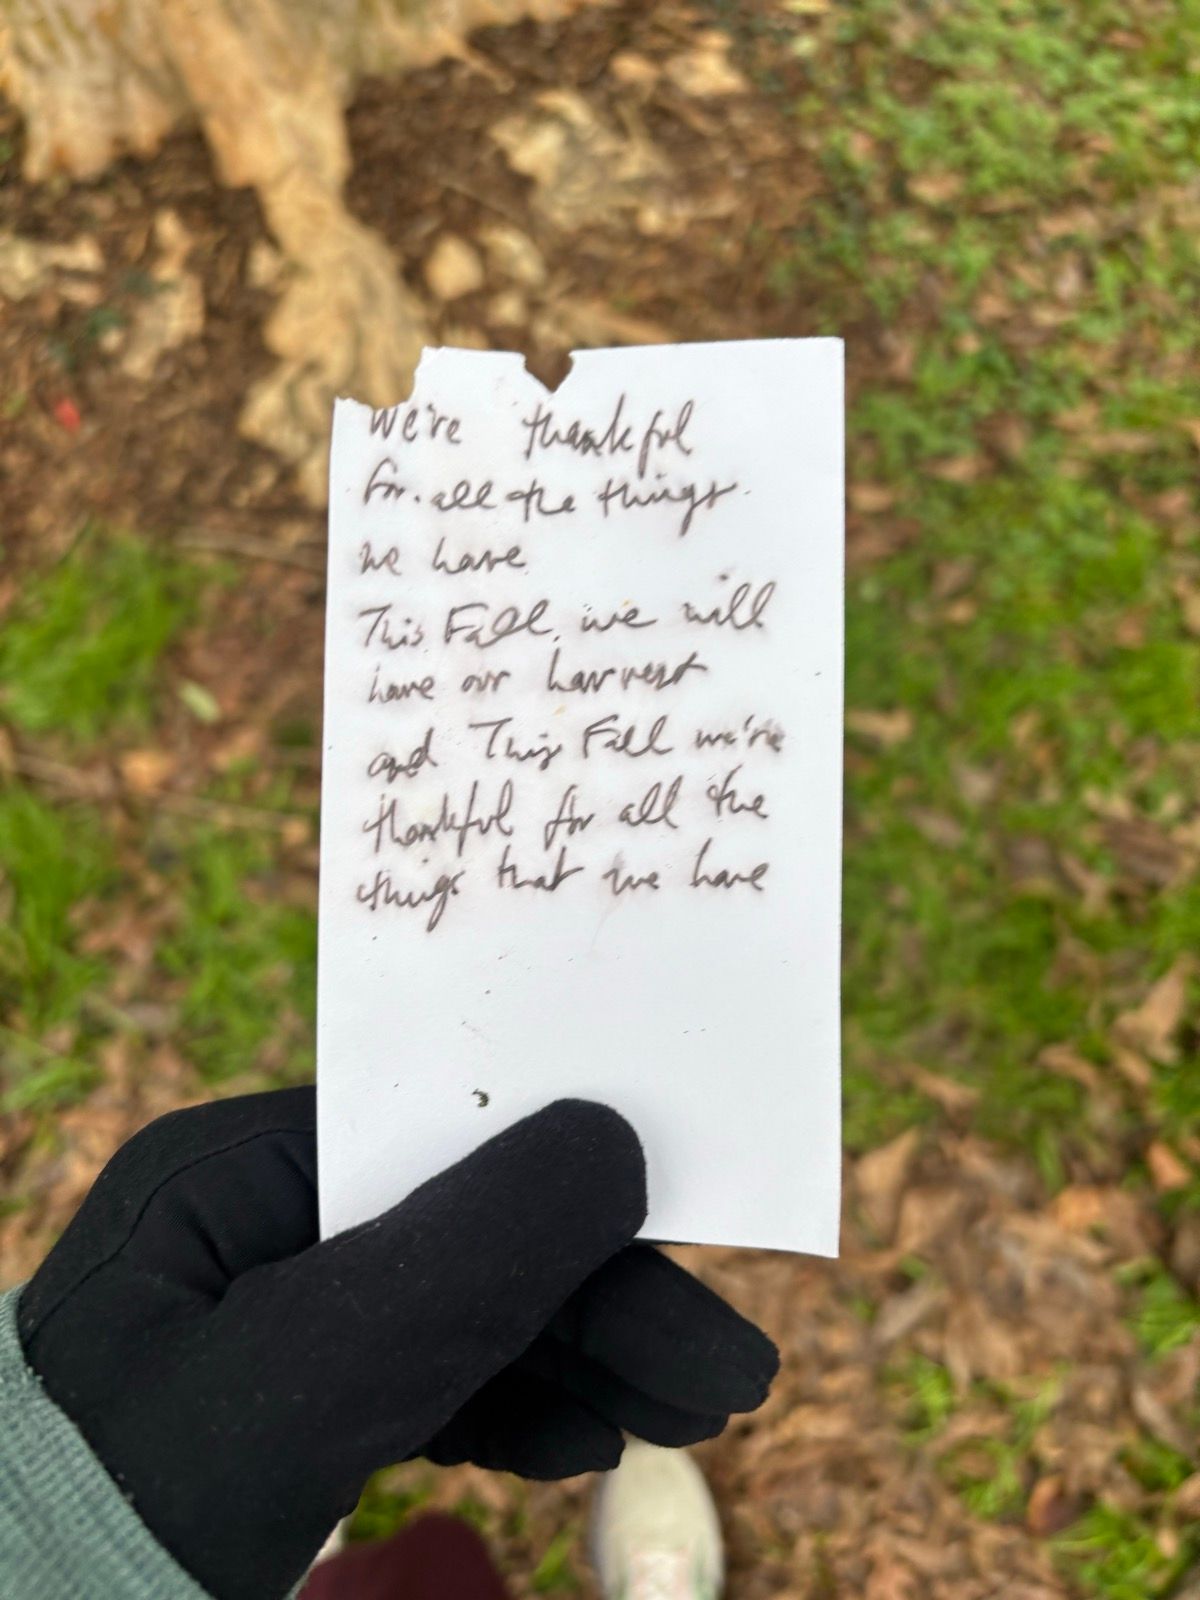 We're thankful
for all the things
we have
This Fall, we will
have our harvest
and This Fall we're
thankful for all the
things that we have